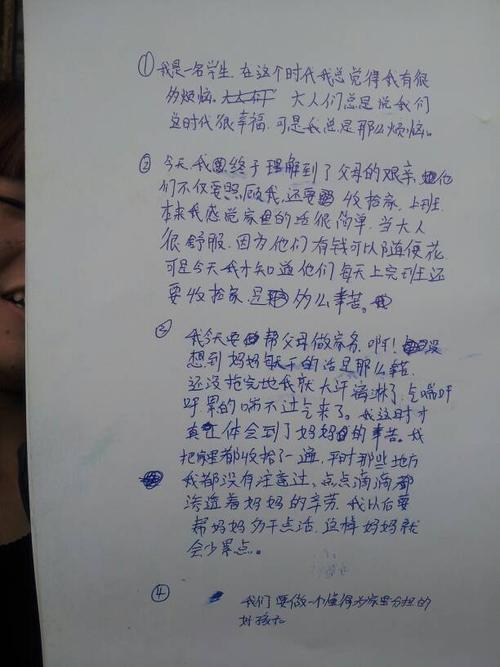 ①我是一名学生.在这个时代我总觉得我有很
多烦恼。大人们总是说我们
这时代很幸福.可是我总是那么烦恼。
②今天.我终于理解到了父母的艰辛.他
们不仅要照顾我.还要收拾家.上班.
本来我感觉家里的活很简单.当大人
很舒服.因为他们有钱可以随便花.
可是今天我才知道他们每天上完班还
要收拾家.是多么辛苦。
③我今天要帮父母做家务.啊!没
想到妈妈每天干的活是那么辛苦.
还没拖完地我就大汗淋淋了.气喘吁
吁累的喘不过气来了。我这时才
真正体会到了妈妈的辛苦。我
把家里都收拾了一遍.平时那些地方
我都没有注意过.点点滴滴都
渗透着妈妈的辛劳.我以后要
帮妈妈多干点活.这样妈妈就
会少累点。
④我们要做一个懂得为家里分担的
好孩子